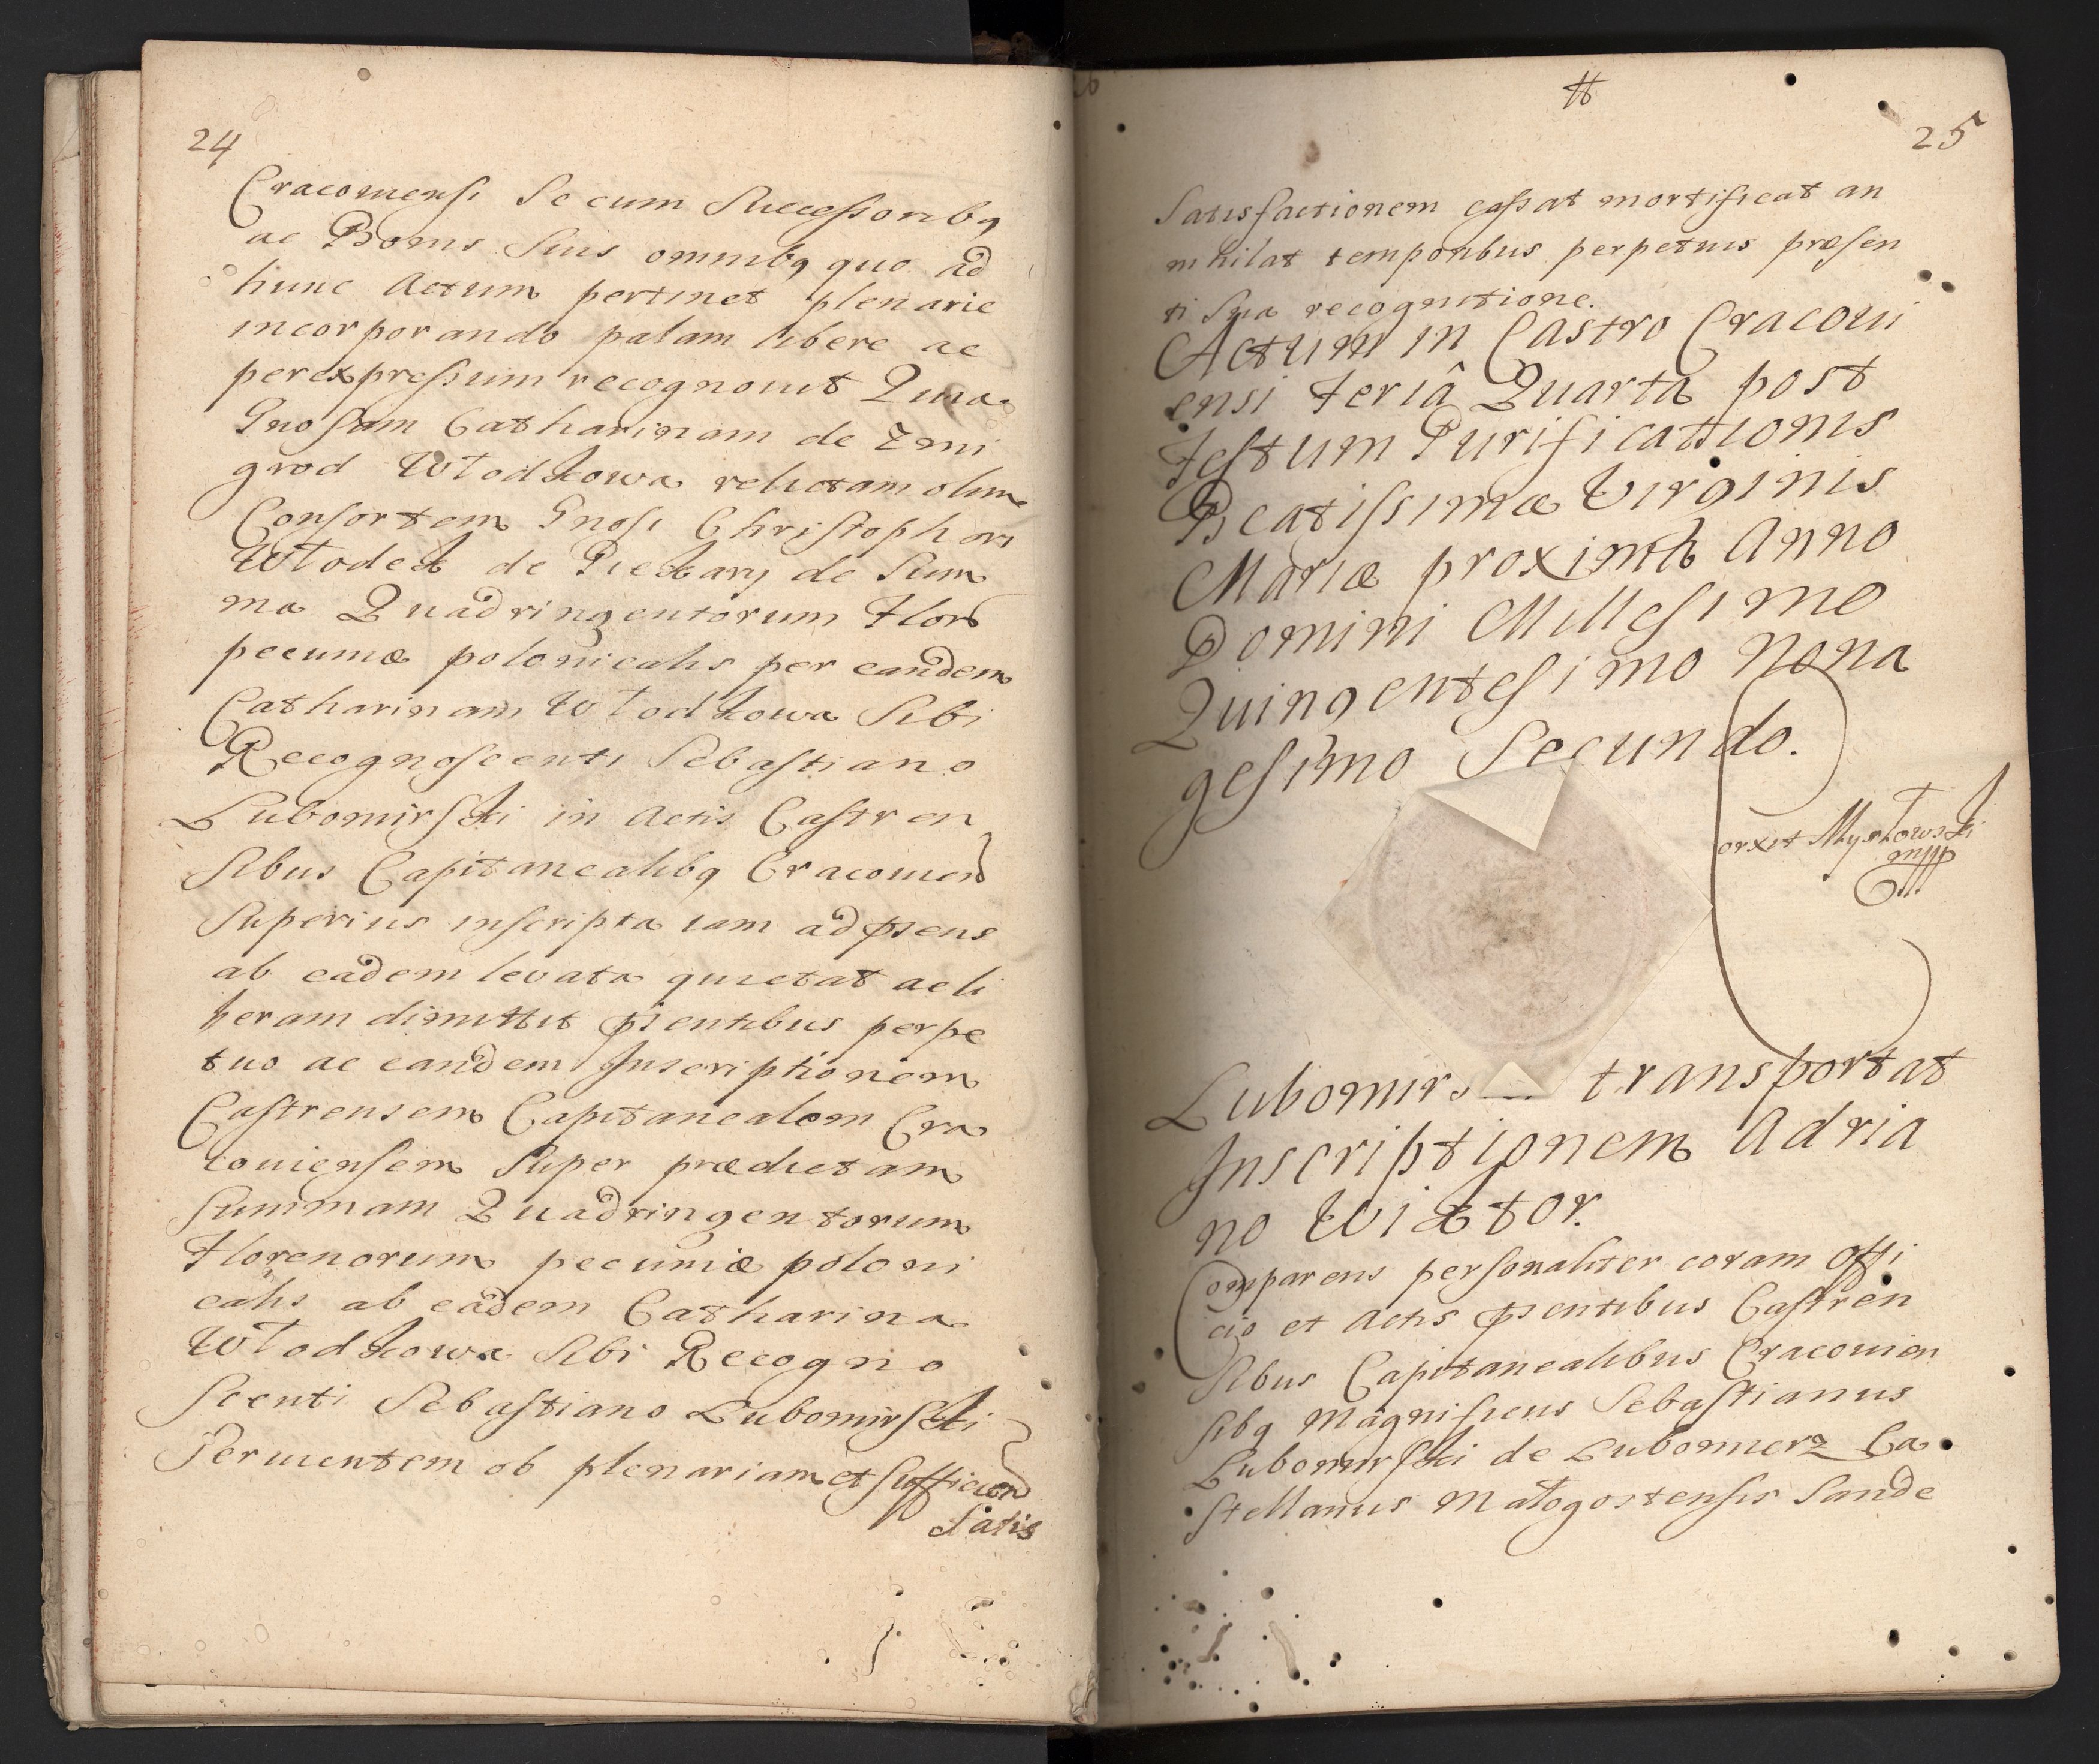 24
Cracoviensi Se cum Successoribq
ac Bonis Suis omnibq quo ad
hunc Actum pertinet plenarie
incorporando palam libere ac
per expressum recognovit Quia
Gnosam Catharinam de Zmi
grod Włodkowa relictam olim
Consortem Gnosi Christophori
Włodek de Piekary de Sum
ma Quadringentorum Flor
pecuniæ polonicalis per eandem
Catharinam Włodkowa Sibi
Recognoscenti Sebastiano
Lubomirski in Actis Castren
sibus Capitanealibq Cracovien
Superius inscripta iam ad pñens
ab eadem levata quietat ac li
beram dimittit pñentibus perpe
tuo ac eandem Inscriptionem
Castrensem Capitanealem Cra
coviensem Super prædictam
Summam Quadringentorum
Florenorum pecuniæ poloni
calis ab eadem Catharina
Włodkowa Sibi Recogno
scenti Sebastiano Lubomirski
Servientem ob plenariam et sufficien
Satis
#
25
Satisfactionem cassat mortificat an
nihilat temporibus perpetuis præsen
ti Sua recognitione.
Actum in Castro Cracovi
ensi Feriâ Quarta post
Festum Purificationis
Beatissimæ Virginis
Mariæ proximâ Anno
Domini Millesimo
Quingentesimo Nona
gesimo Secundo.
Lubomirs transportat
Inscriptionem Adria
no Wiktor.
Comparens personaliter coram offi
cio et Actis pñentibus Castren
sibus Capitanealibus Cracovien
sibq Magnificus Sebastianus
Lubomirski de Lubomierz Ca
stellanus Małogostensis Sande